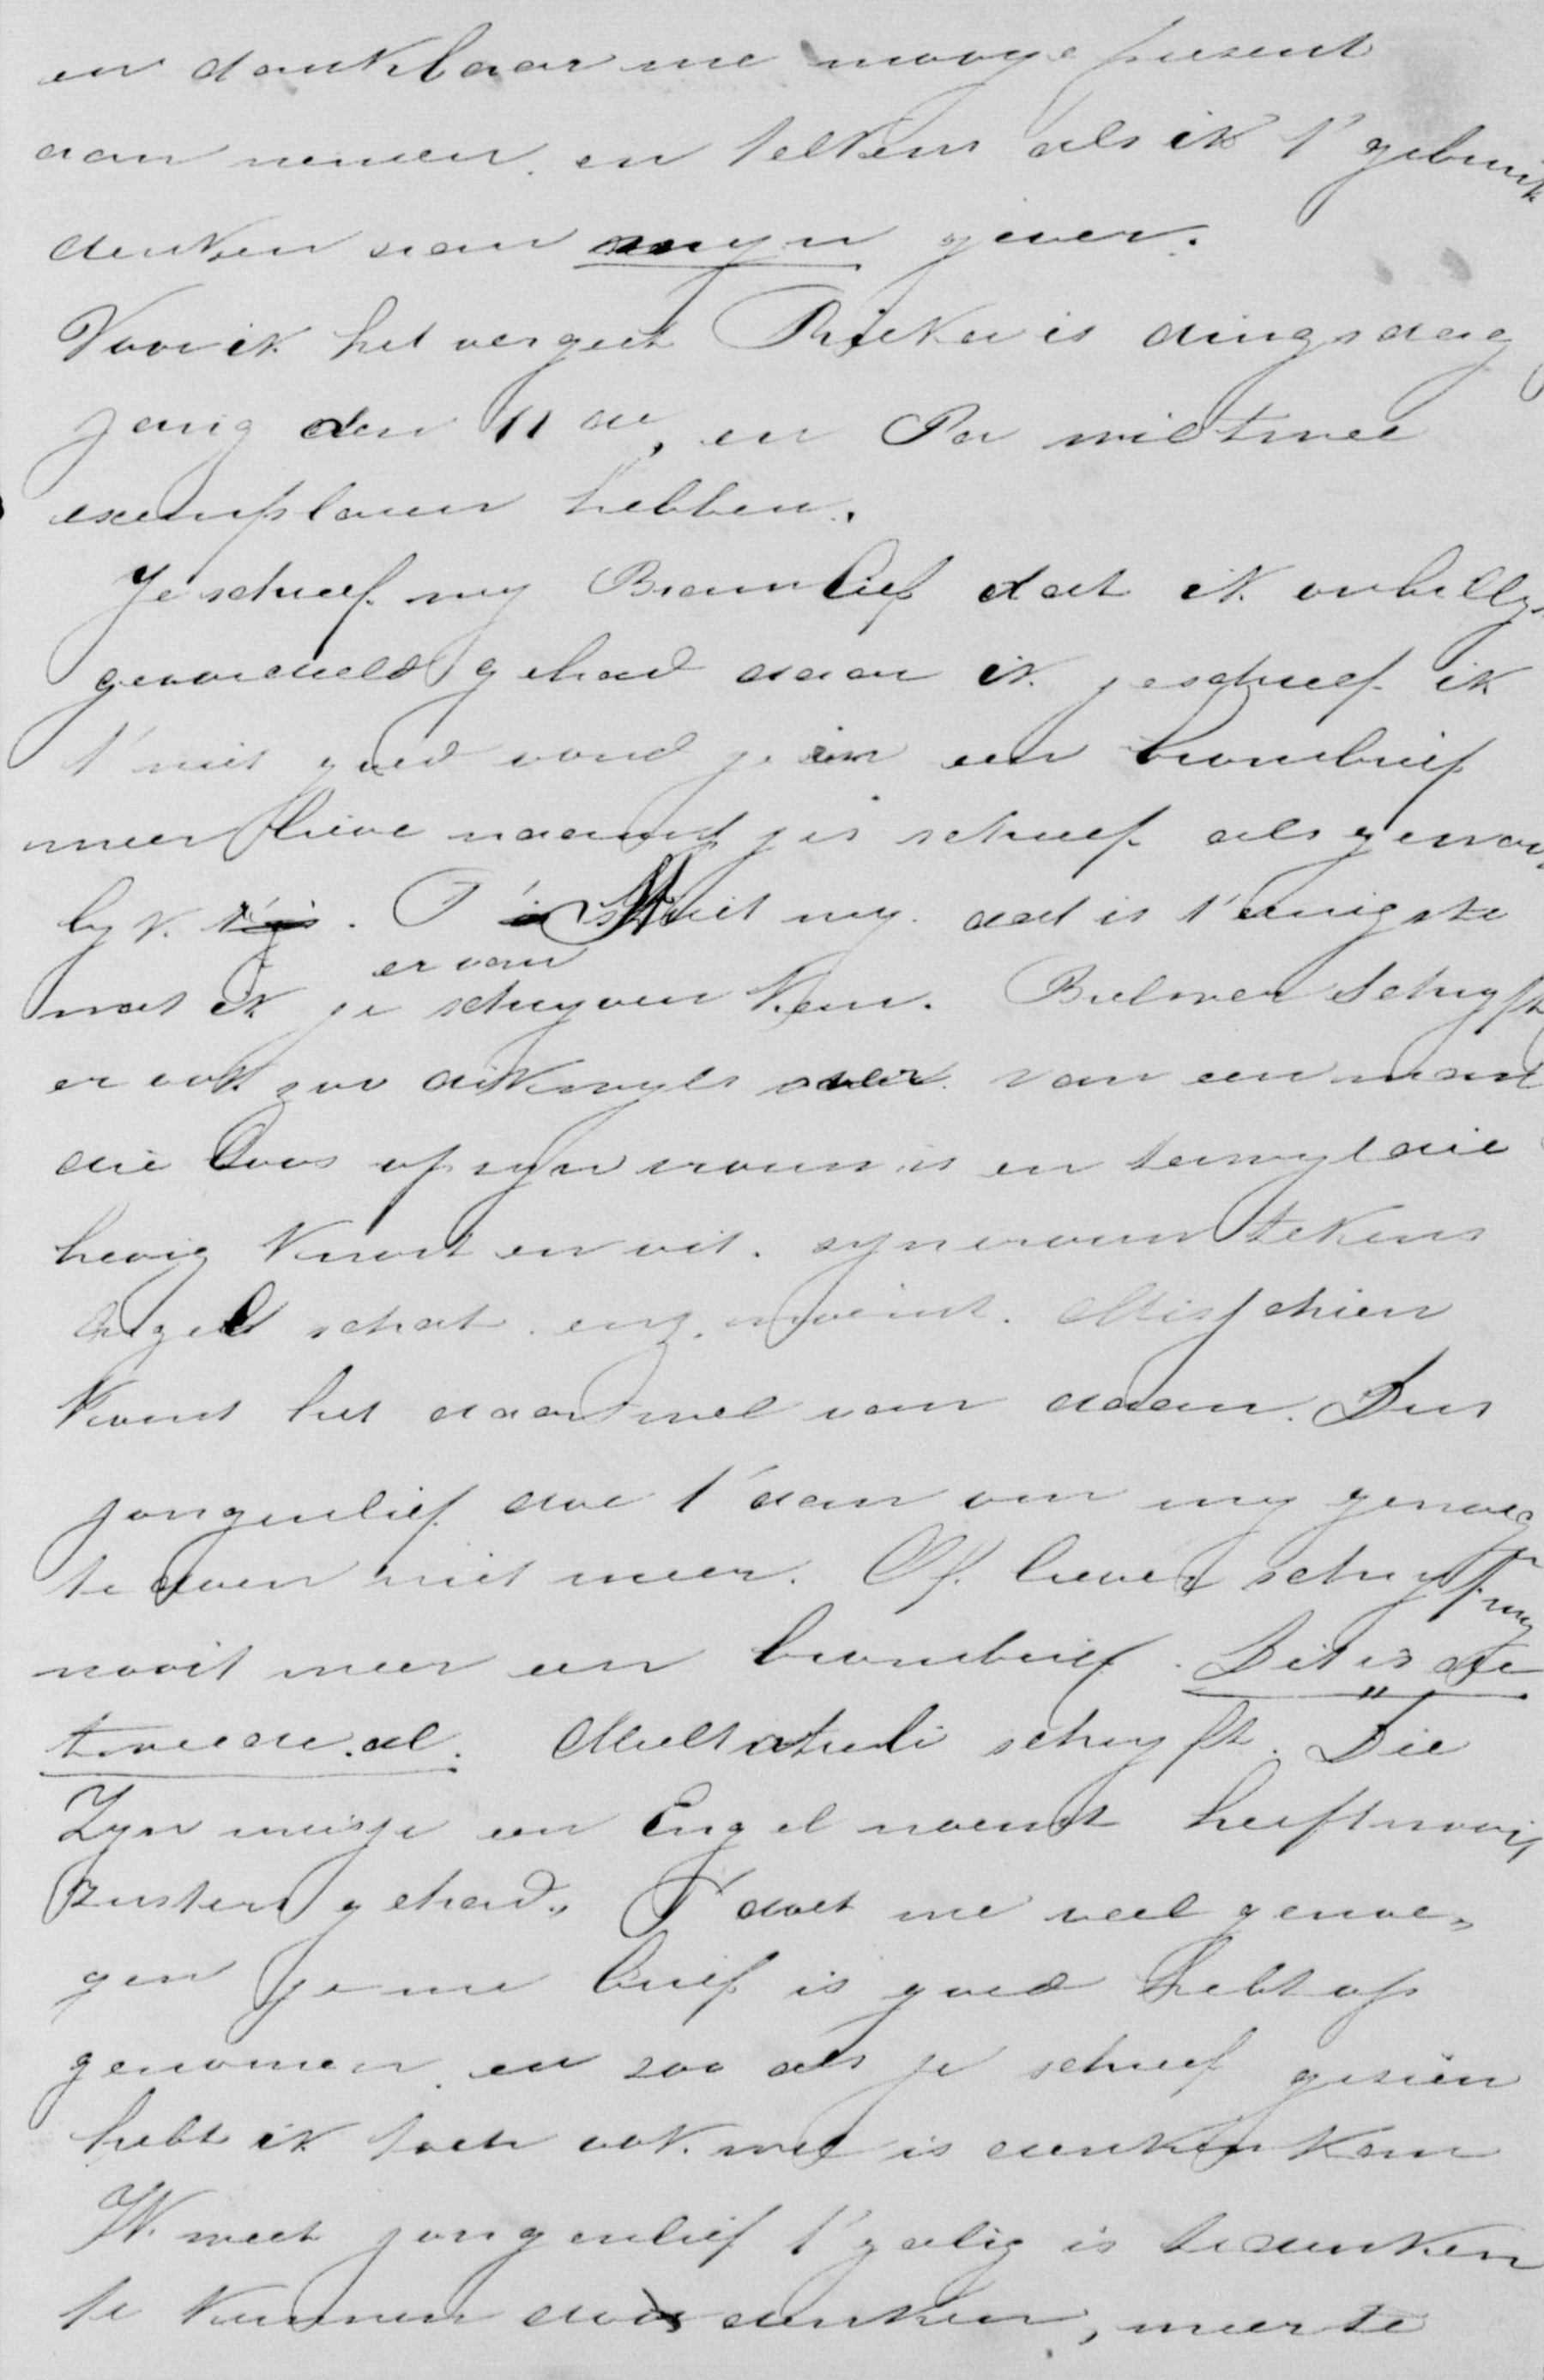 en dankbaar me mooye present
aan nemen. en telkens als ik t' gebruik
denken aan myn gever.
Voor ik het vergeet Rieka is dingsdag
jarig den 11 de, en Pa wil twee
exemplaren hebben.
Je schreef my Bram lief dat ik onbillyk
geoordeeld gehad daar ik je schreef ik
t' niet goed vond je in een brombrief
meer lieve naamtjes schreef als gewoon
lyk. T' stuit my. dat is t'eenigste
er van
wat ik je schryven kan. Bulwer schryft
er ook zoo dikwyls over van een man
die boos op zyn vrouw is en terwyl die
hevig knort en wit. zyn vrouw telkens
Engel schat enz. noemt. Misschien
komt het daar wel van daan. Dus
jongenlief doe t' dan om my genoeg
te doen niet meer. Of liever schryf my
nooit meer een brombrief. Dit is de
tweede al. Multatuli schryft. Die
Zyn meisje een Engel noemt heeft nooit
zusters gehad. T' doet me veel genoe„
gen je me brief is goed hebt op
genomen. en zoo als je schreef gezien
hebt ik toch ook wel is denken kan
W. weet jongenlief t' zalig is te denken
te kunnen denken, meer te